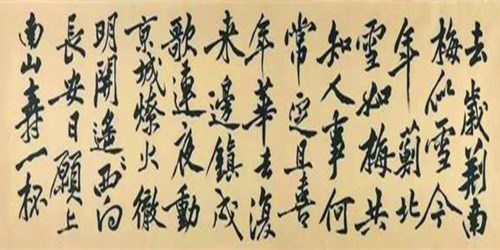 去歲荊南
梅似雪今
年薊北
雪如梅共
知人事何
常定且喜
年華去復
来邊鎮戍
歌連夜動
京城燎火徹
明開遙〻西向
長安日願上
南山壽一杯